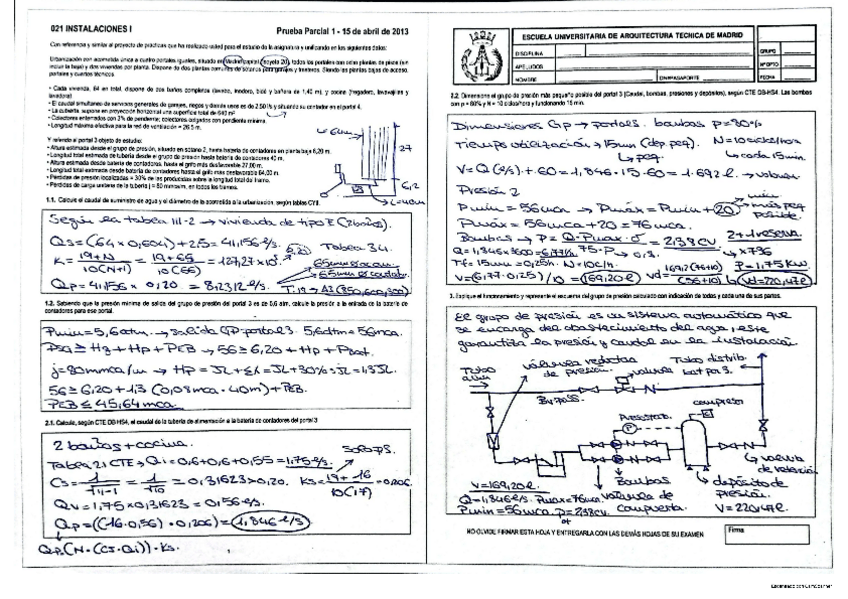 021 INSTALACIONES I
Prueba Parcial 1 - 15 de abril de 2013
Con referencia y similar al proyecto de prácticas que ha realizado usted para el estudio de la asignatura y unificando en los siguientes datos:
• Cada vivienda, 64 en total, dispone de dos baños completos (lavabo, inodoro, bidé y bañera de 1,40 m), y cocina (fregadero, lavavajillas y lavadora)
• El caudal simultaneo de servicios generales de garajes, riegos y demás usos es de 2,50 l/s y situando su contador en el portal 4.
• La cubierta, supone en proyección horizontal una superficie total de 640 m²
• Colectores enterrados con 2% de pendiente; colectores colgados con pendiente mínima.
• Longitud máxima efectiva para la red de ventilación = 26,5 m.
Y referido al portal 3 objeto de estudio:
• Altura estimada desde el grupo de presión, situado en sótano 2, hasta batería de contadores en planta baja 6,20 m.
• Longitud total estimada de tubería desde el grupo de presión hasta batería de contadores 40 m.
• Altura estimada desde batería de contadores, hasta el grifo más desfavorable 27,00 m.
• Longitud total estimada desde batería de contadores hasta el grifo más desfavorable 64,00 m.
• Pérdidas de presión localizadas = 30% de las producidas sobre la longitud total du tramo.
• Perdidas de carga unitaria de la tubería j = 80 mmca/m, en todos los tramos.
27
6,2
L=40m
1.1. Calcule el caudal de suministro de agua y el diámetro de la acometida a la urbanización, según tablas CYII.
Según la tabla III-2 → vivienda de tipo E (2baños).
Qs=(64×0,604)+2,5=41,156 l/s.
Tabla 3.4.
K= 19+N / 10(N+1) = 19+65 / 10(66)
Qp=41,156 × 0,20 = 8,2312 l/s.
1.2. Sabiendo que la presión mínima de salida del grupo de presión del portal 3 es de 5,6 atm, calcule la presión a la entrada de la batería de contadores para ese portal.
Pmin=5,6atm → salida GP-portal 3. 5,6atm=56mca.
56≥6,20+1,3(0,08mca·40m)+PEB.
PEB≤45,64mca.
2.1. Calcule, según CTE DB-HS4, el caudal de la tubería de alimentación a la batería de contadores del portal 3
2 baños+cocina.
Tabla 2.1 CTE→Qi=0,6+0,6+0,55=1,75 l/s.
Cs= 1/√n-1 = 1/√10 =0,31623>0,20. Ks= 19+16 / 10(17) =0,206.
Qv=1,75×0,31623=0,56 l/s.
Qp=((16·0,56)·0,206)=1,846 l/s
Qp(N·(Cs·Qi))·Ks.
ESCUELA UNIVERSITARIA DE ARQUITECTURA TECNICA DE MADRID
DISCIPLINA
GRUPO
APELLIDOS
Nº OPTO
NOMBRE
DNI/PASAPORTE
FECHA
2.2. Dimensione el grupo de presión más pequeño posible del portal 3 (Caudal, bombas, presiones y depósitos), según CTE DB-HS4. Las bombas con ρ = 80% y N = 10 ciclos/hora y funcionando 15 min.
Dimensiones Gp → portal 3. bombas ρ=80%
Tiempo utilización→15min (dep. peq.) N=10ciclos/hora
cada 15min.
V=Q(l/s)·t·60=1,846·15·60=1.692 l.→volumen
Presión 2
Pmin=56mca→Pmáx=Pmin+20
Pmáx=56mca+20=76mca.
Bombas → P= Q·Pmax·σ / 75·ρ =2,38CV.
2+1 reserva.
x736
P=1,75KW.
Tf=15min=0,25h. N=10c/h
V=(6,77·0,25)/10=169,20 l
Vd= 169,2(76+10) / (56+10) =Vd=220,47 l
3. Explique el funcionamiento y represente el esquema del grupo de presión calculado con indicación de todos y cada una de sus partes.
El grupo de presión es un sistema automático que
se encarga del abastecimiento del agua, este
garantiza la presión y caudal en la instalación.
Tubo alim
válvula reductora de presión.
válvula
Tubo distrib.
bat. pa 3.
Bypass.
compresor
Presostato.
P
válvula de retención.
Bombas
depósito de presión.
válvulas de compuerta.
V=169,20 l.
Q=1,846 l/s. Pmax=76mca.
Pmin=56mca P=2,38CV.
V=220,47 l.
NO OLVIDE FIRMAR ESTA HOJA Y ENTREGARLA CON LAS DEMÁS HOJAS DE SU EXAMEN
Firma